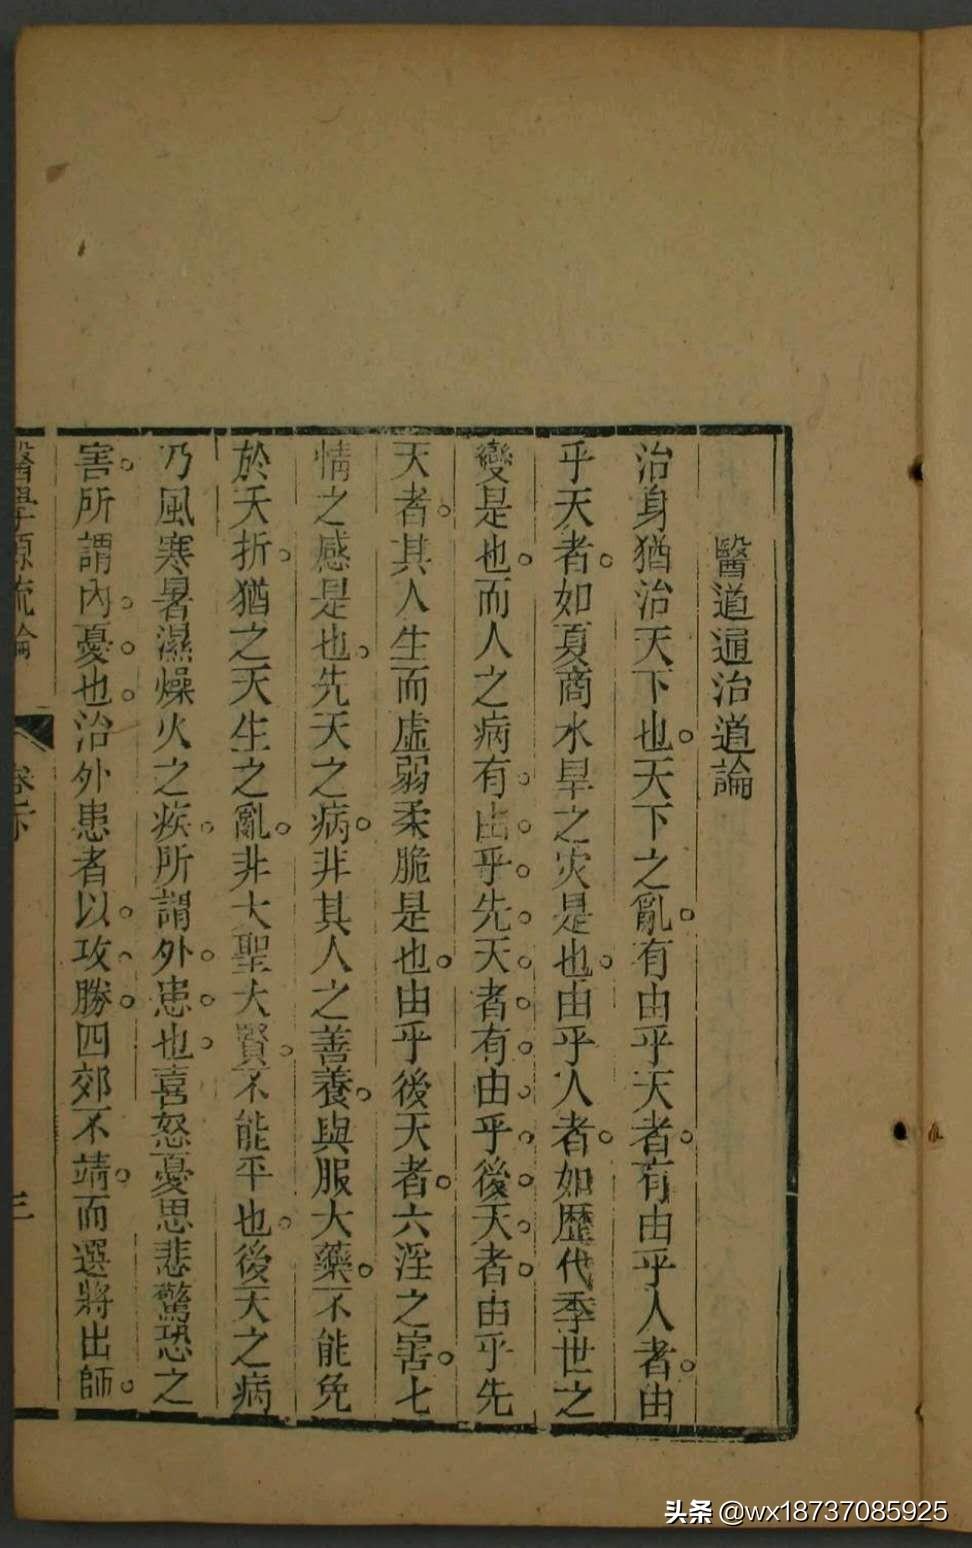 醫道通治道論
治身猶治天下也天下之亂有由乎天者有由乎人者由
乎天者如夏商水旱之灾是也由乎人者如歷代季世之
變是也而人之病有由乎先天者有由乎後天者由乎先
天者其人生而虛弱柔脆是也由乎後天者六淫之害七
情之感是也先天之病非其人之善養與服大藥不能免
於夭折猶之天生之亂非大聖大賢不能平也後天之病
乃風寒暑濕燥火之疾所謂外患也喜怒憂思悲驚恐之
害所謂內憂也治外患者以攻勝四郊不靖而選將出師
醫學源流論 卷六 三
头条 @wx18737085925